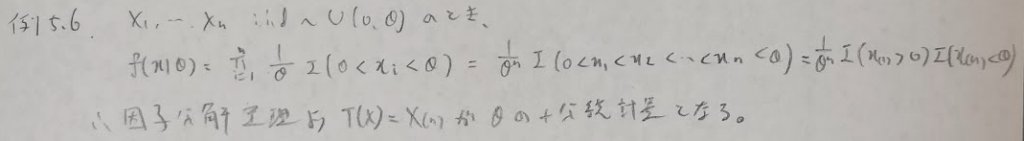 例5.6. X₁, ⋯ Xₙ iid ~ U(0,θ) のとき、
f(x|θ) = ∏ᵢ₌₁ⁿ 1/θ I(0<xᵢ<θ) = 1/θⁿ I(0<x₁<x₂<⋯<xₙ<θ) = 1/θⁿ I(x₍₁₎>0) I(x₍ₙ₎<θ)
∴ 因子分解定理より T(X) = X₍ₙ₎ が θ の十分統計量となる。